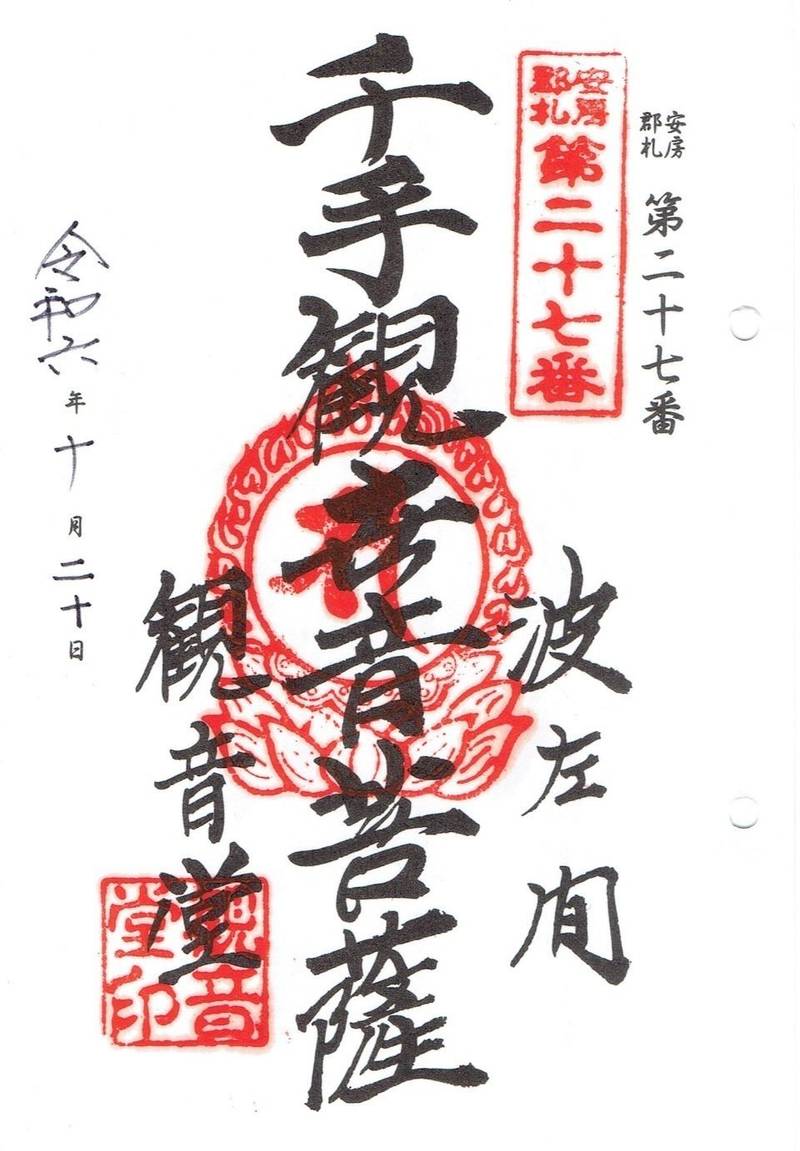 安房
郡札
第二十七番
安房
郡札
第二十七番
波左間
千手観世音菩薩
観音堂
観音
堂印
令和六年十月二十日